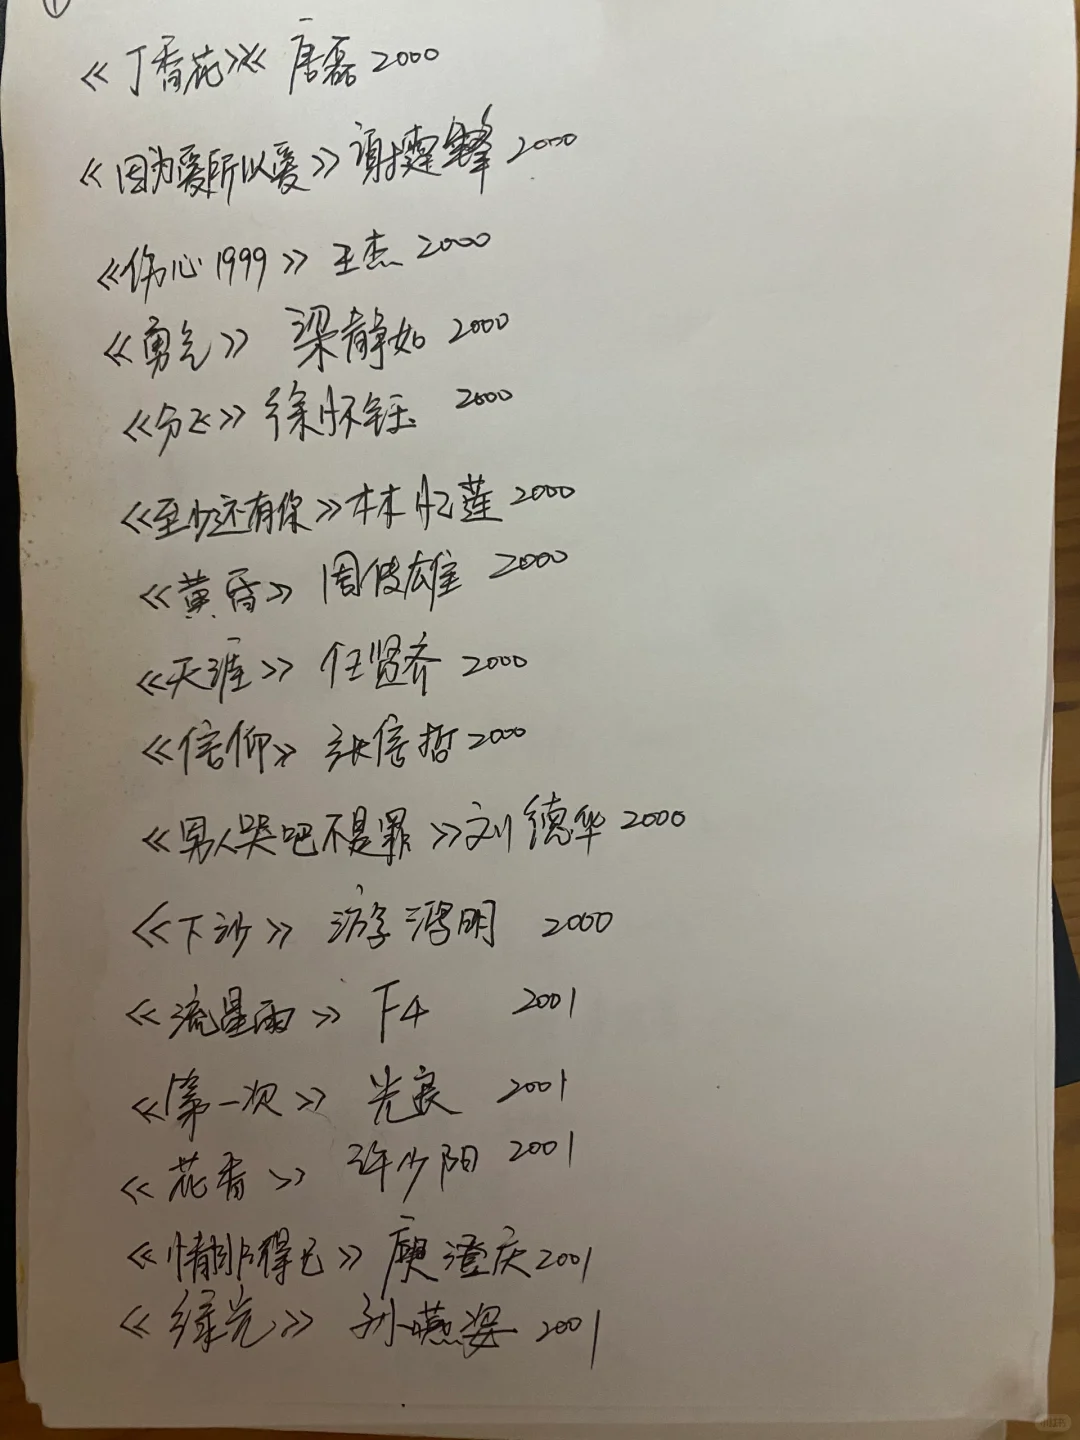 ①
《丁香花》唐磊 2000
《因为爱所以爱》谢霆锋 2000
《伤心1999》王杰 2000
《勇气》梁静如 2000
《分飞》徐怀钰 2000
《至少还有你》林忆莲 2000
《黄昏》周传雄 2000
《天涯》任贤齐 2000
《信仰》张信哲 2000
《男人哭吧不是罪》刘德华 2000
《下沙》游鸿明 2000
《流星雨》F4 2001
《第一次》光良 2001
《花香》许少阳 2001
《情非得已》庾澄庆 2001
《绿光》孙燕姿 2001
小红书